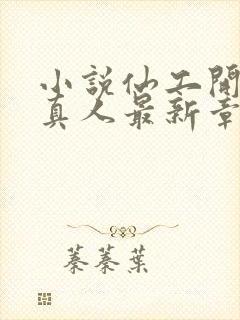 小說仙工開
真人最新章
蓁蓁葉